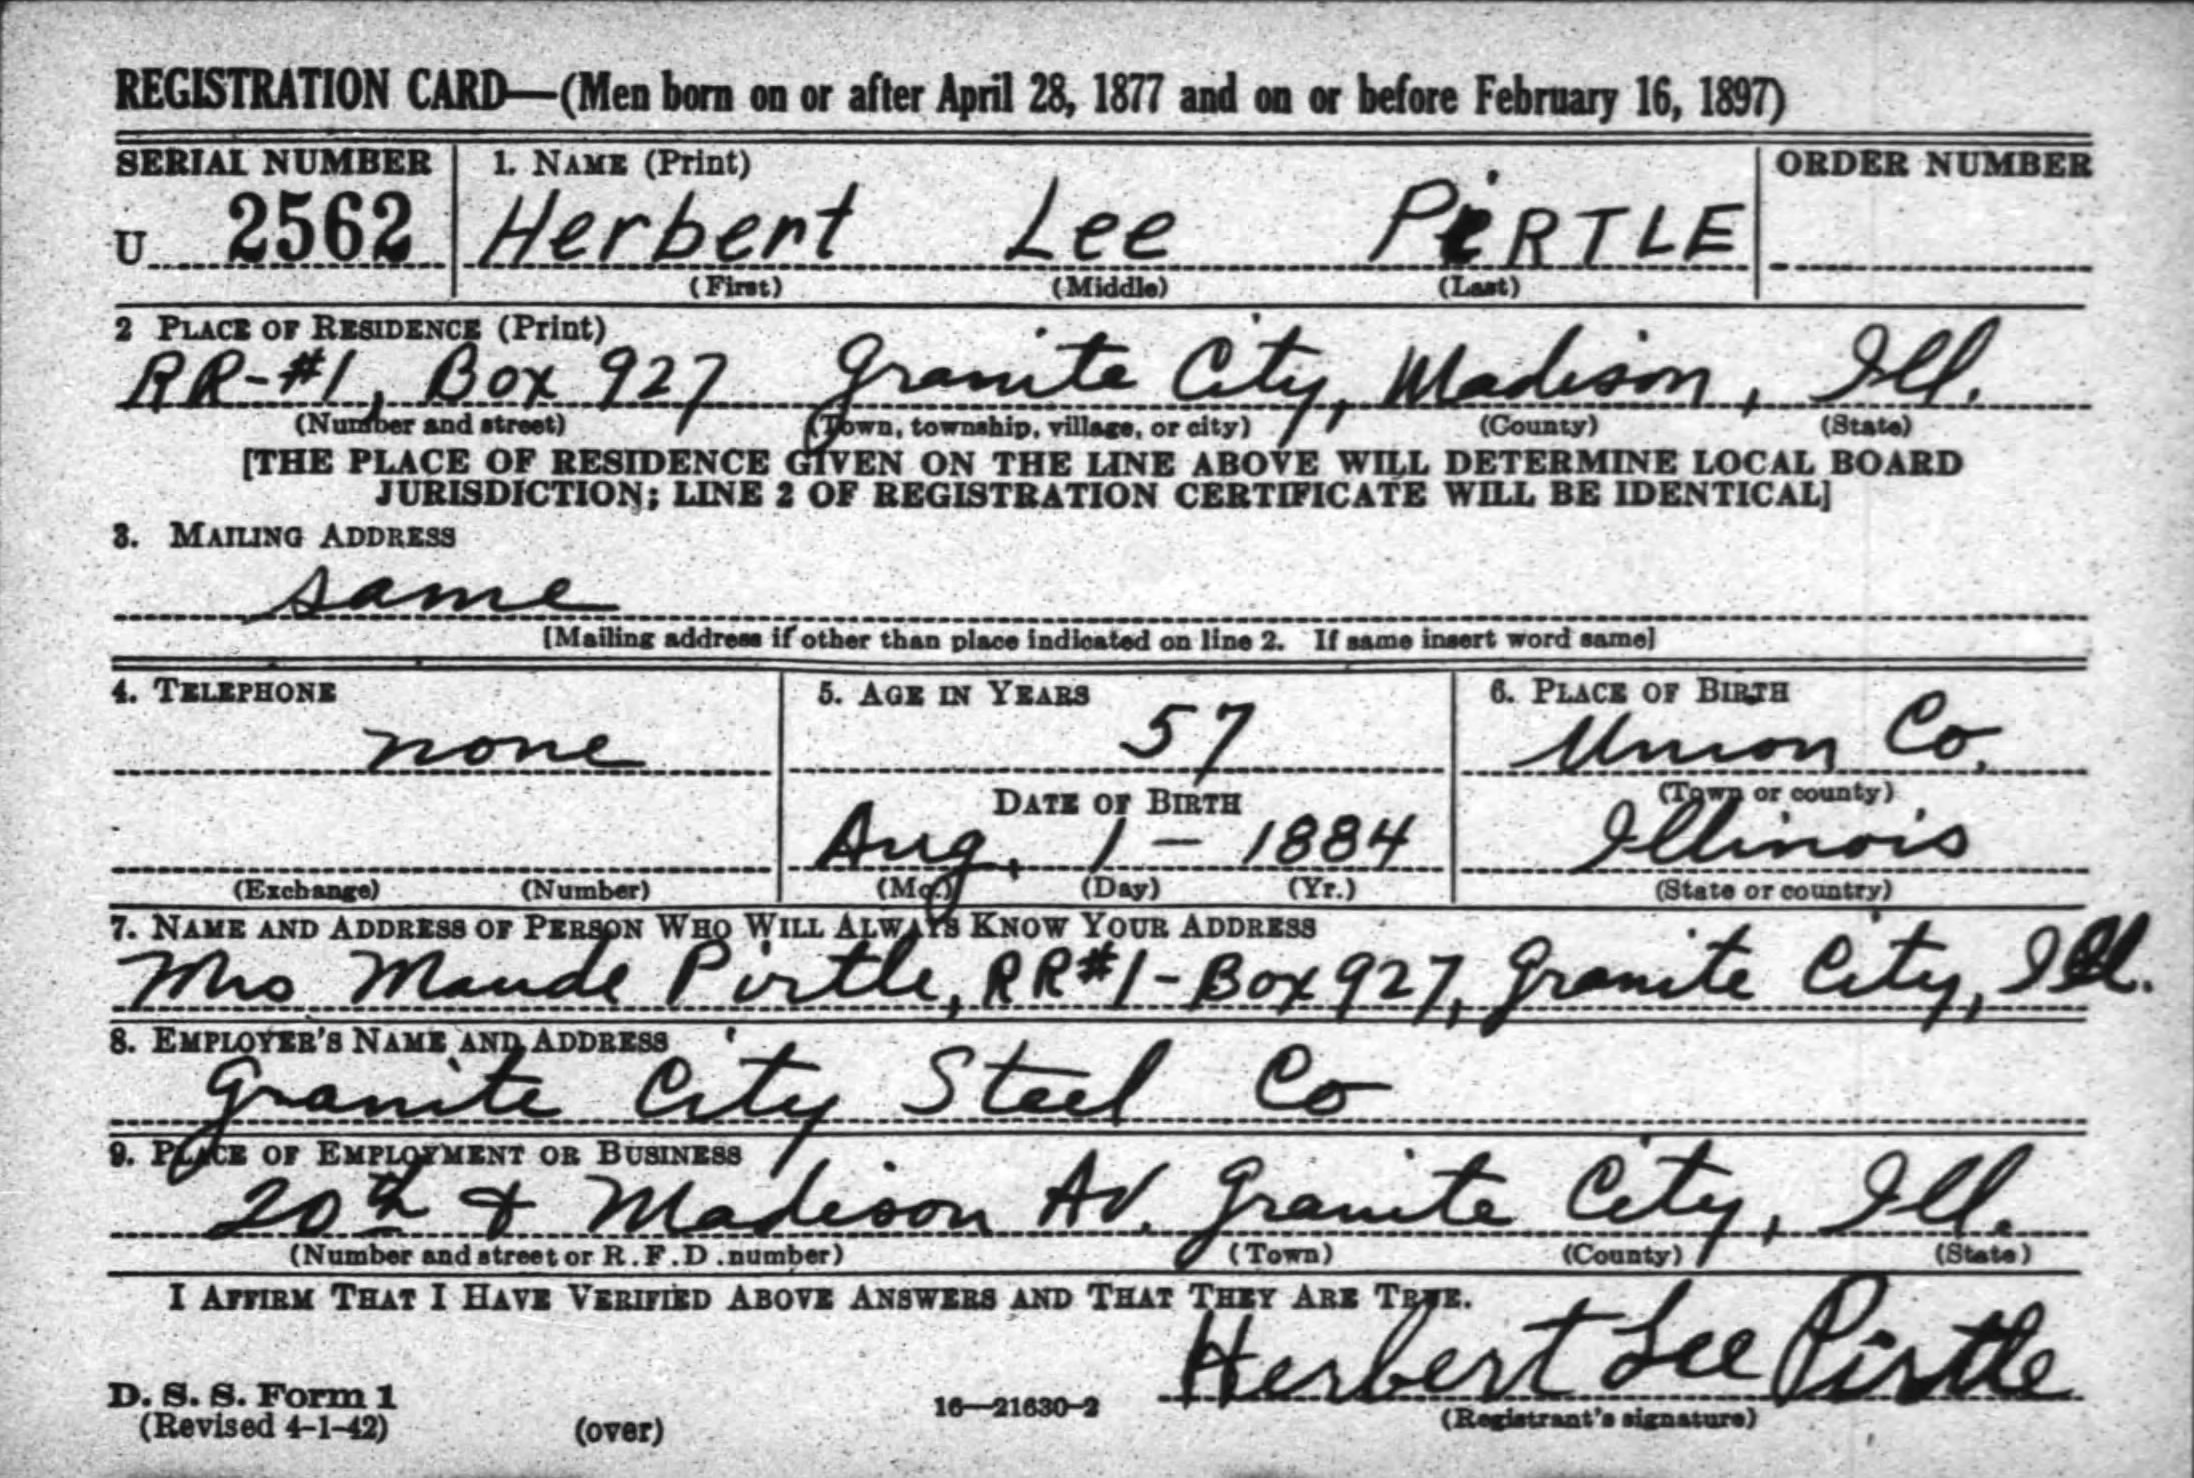 REGISTRATION CARD—(Men born on or after April 28, 1877 and on or before February 16, 1897)
SERIAL NUMBER 1. NAME (Print) ORDER NUMBER
U 2562 Herbert Lee PiRTLE
(First) (Middle) (Last)
2 PLACE OF RESIDENCE (Print)
RR-#1, Box 927 Granite City, Madison, Ill.
(Number and street) (Town, township, village, or city) (County) (State)
[THE PLACE OF RESIDENCE GIVEN ON THE LINE ABOVE WILL DETERMINE LOCAL BOARD
JURISDICTION; LINE 2 OF REGISTRATION CERTIFICATE WILL BE IDENTICAL]
3. MAILING ADDRESS
same
[Mailing address if other than place indicated on line 2. If same insert word same]
4. TELEPHONE 5. AGE IN YEARS 6. PLACE OF BIRTH
none 57 Union Co.
DATE OF BIRTH (Town or county)
Aug. 1 - 1884 Illinois
(Exchange) (Number) (Mo.) (Day) (Yr.) (State or country)
7. NAME AND ADDRESS OF PERSON WHO WILL ALWAYS KNOW YOUR ADDRESS
Mrs Maude Pirtle, RR#1-Box 927, Granite City, Ill.
8. EMPLOYER'S NAME AND ADDRESS
Granite City Steel Co
9. PLACE OF EMPLOYMENT OR BUSINESS
20th & Madison Av. Granite City, Ill.
(Number and street or R.F.D. number) (Town) (County) (State)
I AFFIRM THAT I HAVE VERIFIED ABOVE ANSWERS AND THAT THEY ARE TRUE.
Herbert Lee Pirtle
D. S. S. Form 1
(Revised 4-1-42) (over) 16—21630-2 (Registrant's signature)